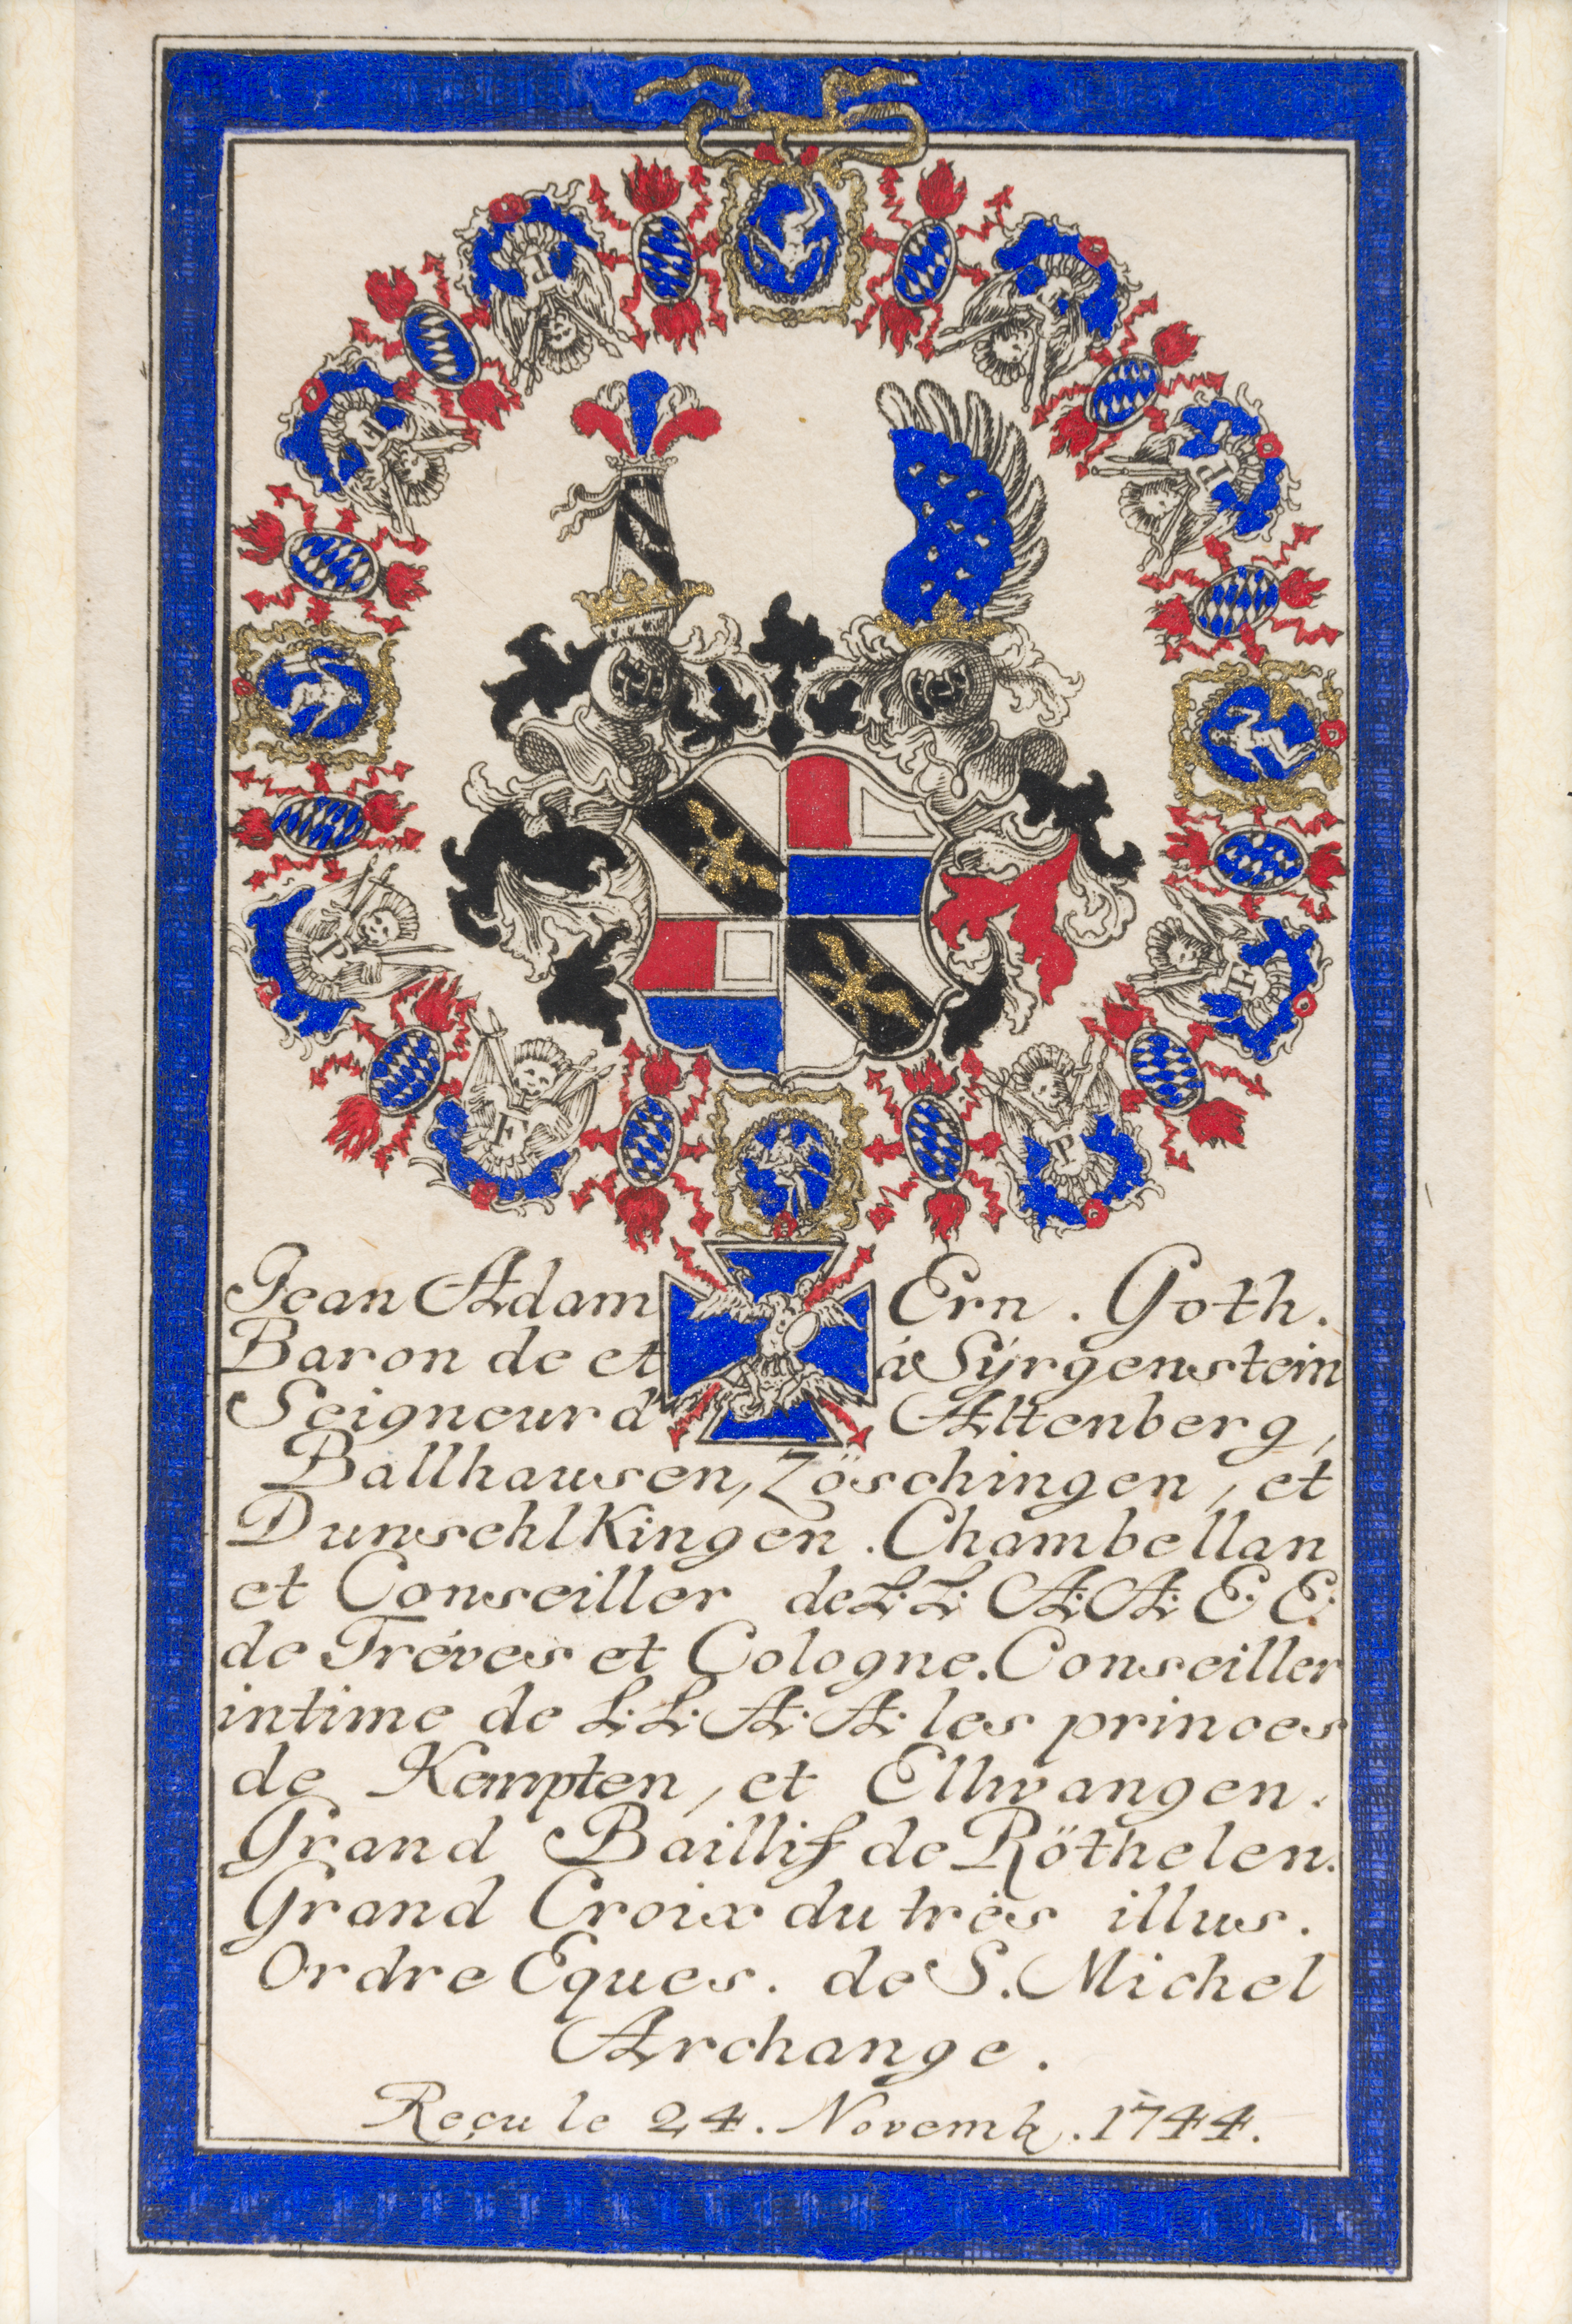 P
F
P
F
P
F
F
P
Jean Adam Ern. Goth.
Baron de et à Sÿrgenstein
Seigneur d' Altenberg,
Ballhausen, Zöschingen, et
DunsehlKingen. Chambellan
et Conseiller de L: L: A: A: E: E:
de Tréves et Cologne. Conseiller
intime de L: L: A: A: les princes
de Kempten, et Ellwangen.
Grand Baillif de Röthelen.
Grand Croix du très illus.
Ordre Eques. de S. Michel
Archange.
Reçu le 24. Novemb. 1744.